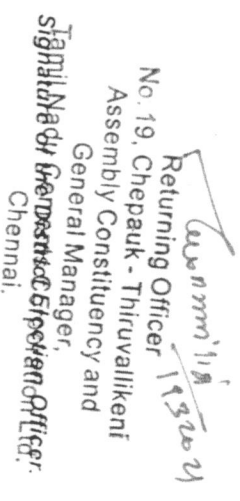 19/3/2021
Returning Officer
No. 19, Chepauk - Thiruvallikeni
Assembly Constituency and
General Manager,
Tamil Nadu
Signature of the District Election Officer.
Chennai.